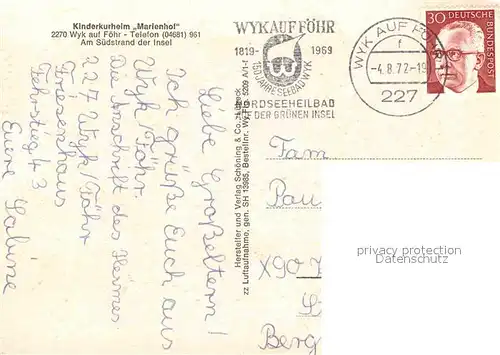 Kinderkurheim „Marienhof"
2270 Wyk auf Föhr - Telefon (04681) 961
Am Südstrand der Insel
Liebe Großeltern!
Ich grüße Euch aus
Wyk Föhr.
Die Anschrift des Heimes
227 Wyk/Föhr
Friesenhaus
Fehrstieg 43
Eure Sabine
Hersteller und Verlag Schöning & Co., Lübeck
zz Luftaufnahme, gen. SH 13985, Bestellnr. Wy
WYK AUF FÖHR
1819- 1969
150 JAHRE SEEBAD WYK
NORDSEEHEILBAD
DER GRÜNEN INSEL
WYK AUF FÖHR 1
f
-4.8.72-19
227
30 DEUTSCHE
BUNDESPOST
Fam
Pau
X90
Berg
privacy protection